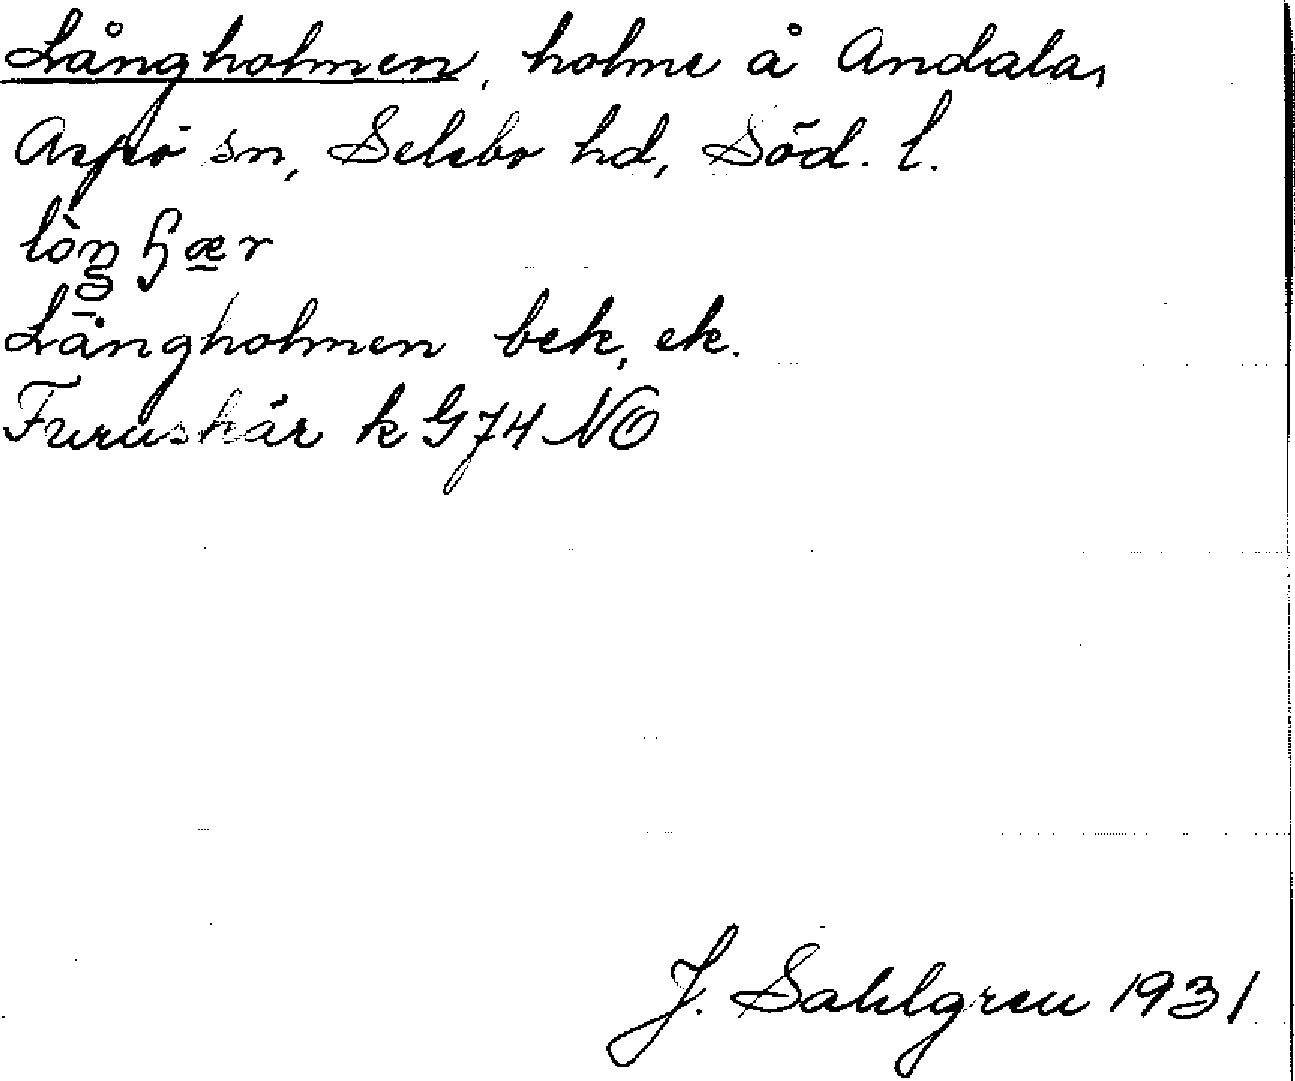 Långholmen, holme å Andala,
Aspö sn, Selebo hd, Söd. l.
Långholmen bek, ek.
Furuskär k G74 NO
J. Sahlgren 1931